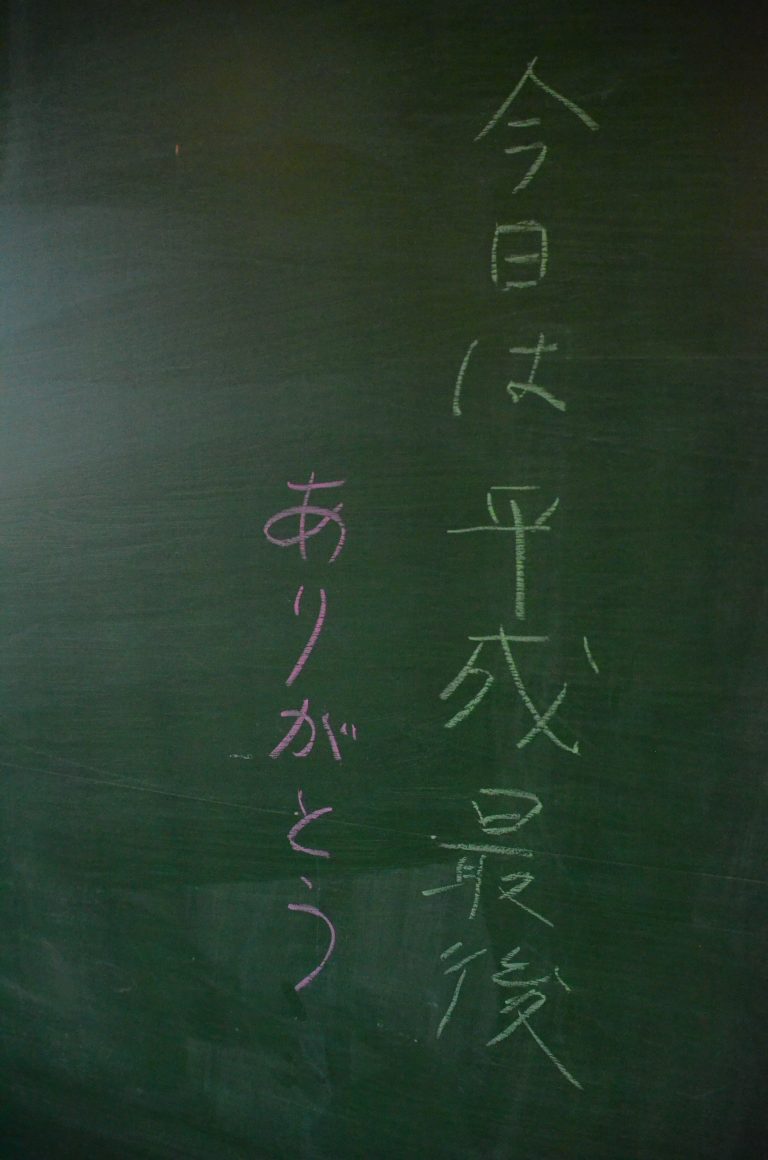 今日は平成最後
ありがとう